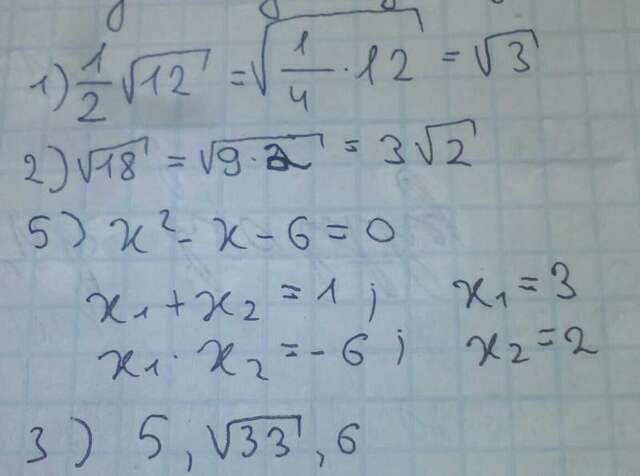 1) 1/2 √12 = √(1/4 · 12) = √3
2) √18 = √(9·2) = 3√2
5) x² - x - 6 = 0
x₁ + x₂ = 1 ; x₁ = 3
x₁ · x₂ = - 6 ; x₂ = 2
3) 5, √33, 6